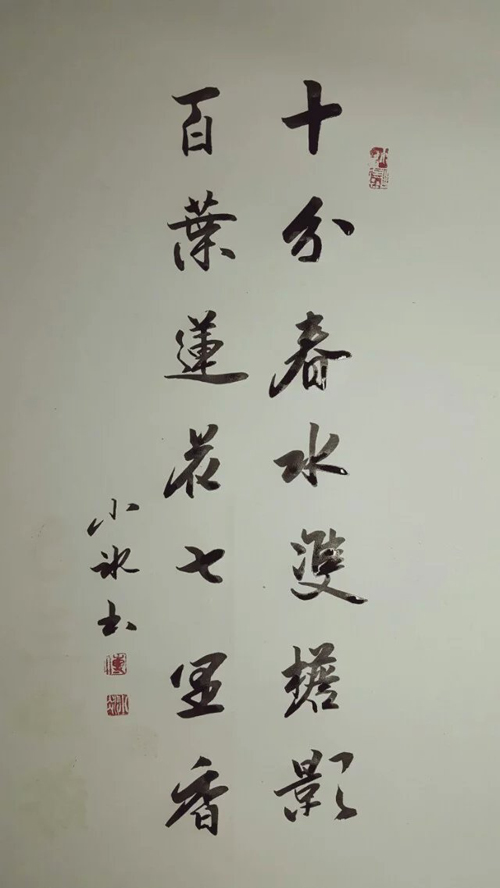 十分春水雙檐影
百葉蓮花七里香
小冰书